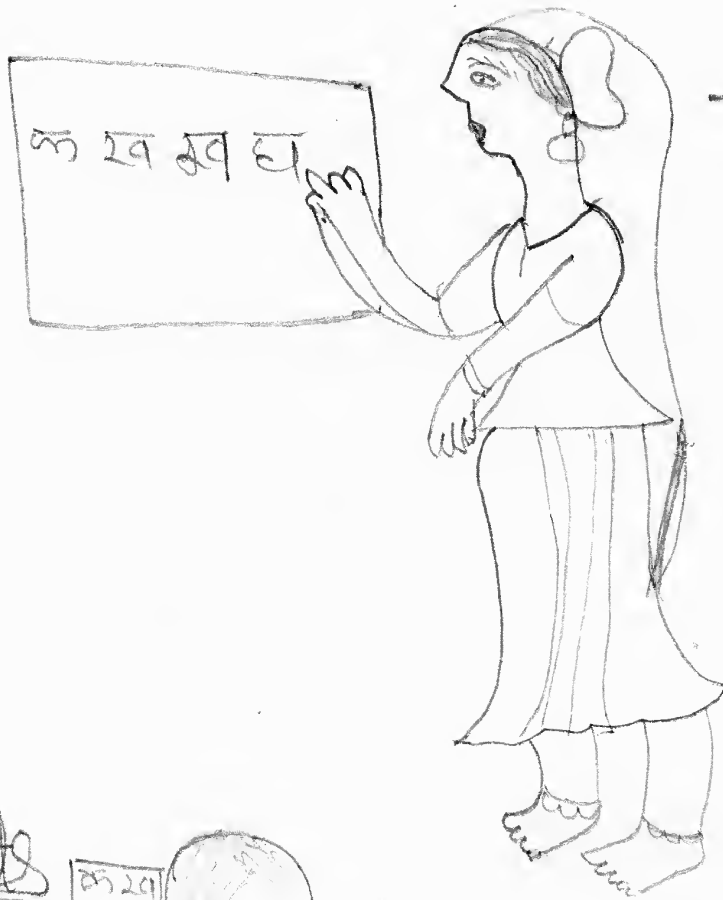 क ख घ
क ख